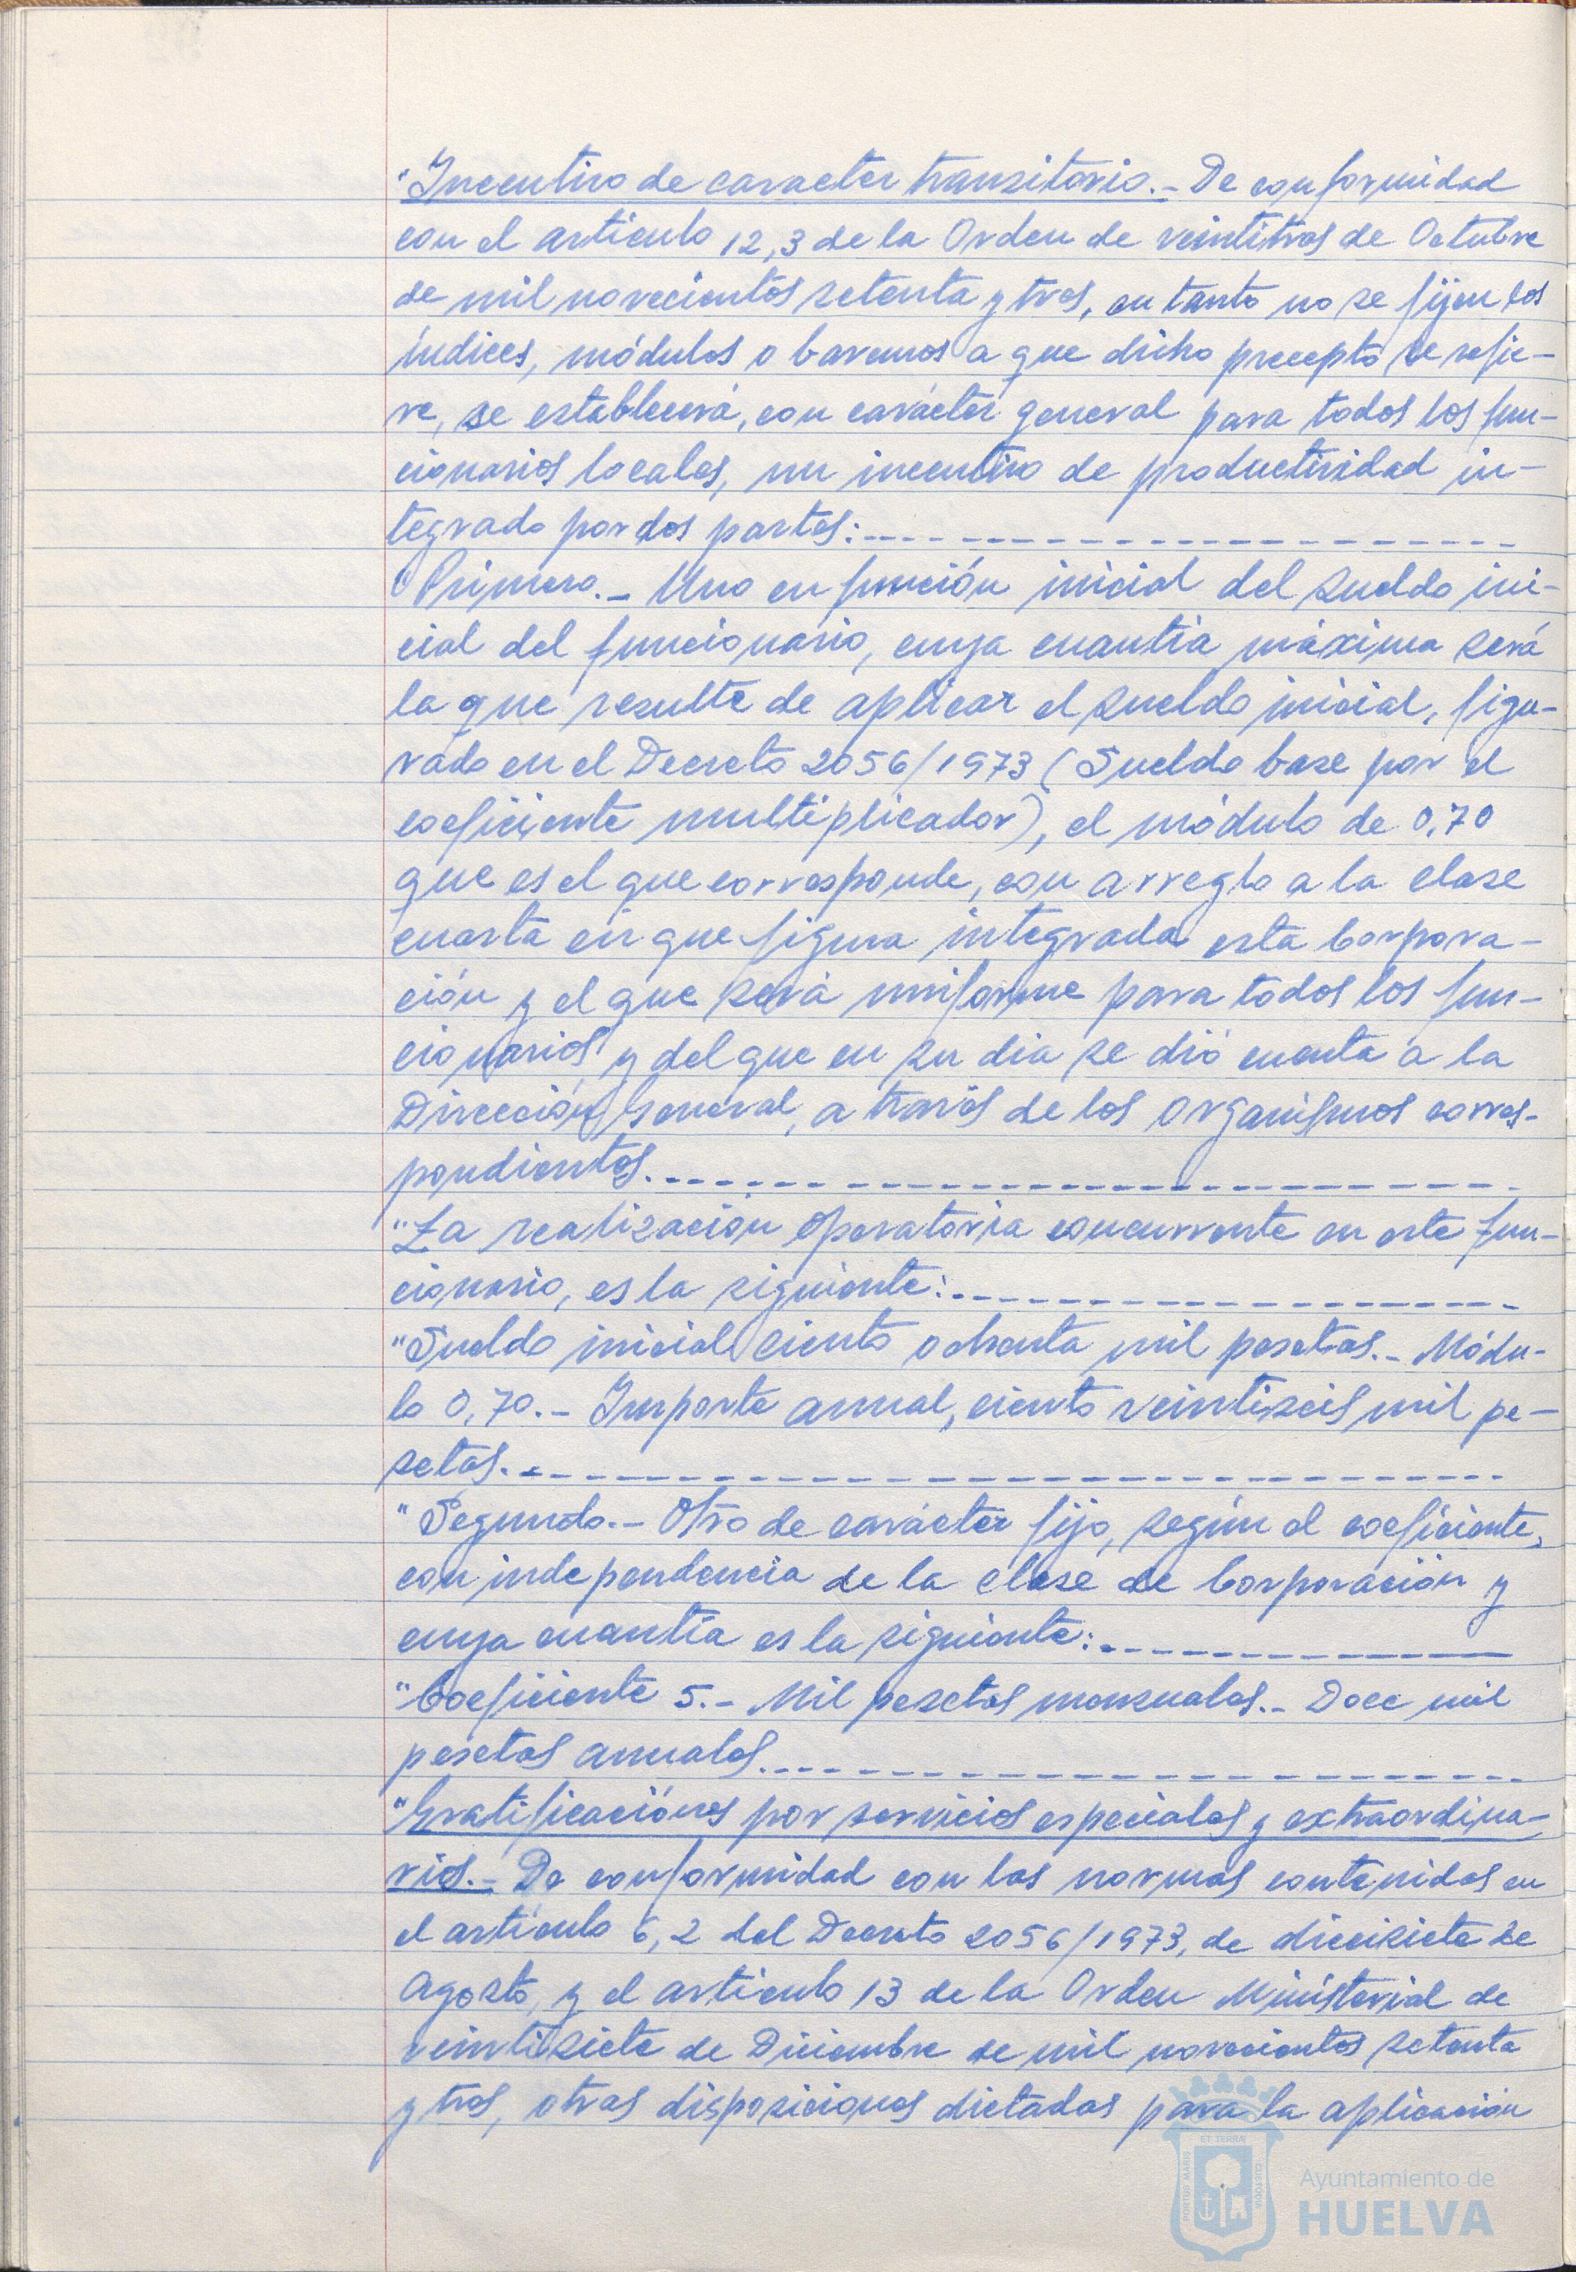 "Incentivo de caracter transitorio.- De conformidad
con el artículo 12,3 de la Orden de veintitres de Octubre
de mil novecientos setenta y tres, en tanto no se fijen los
índices, módulos o baremos a que dicho precepto se refie-
re, se establecerá, con carácter general para todos los fun-
cionarios locales, un incentivo de productividad in-
tegrado por dos partes:
"Primero.- Uno en función inicial del sueldo ini-
cial del funcionario, cuya cuantía máxima será
la que resulte de aplicar el sueldo inicial, figu-
rado en el Decreto 2056/1973 (Sueldo base por el
coeficiente multiplicador), el módulo de 0,70
que es el que corresponde, con arreglo a la clase
cuarta en que figura integrada esta Corpora-
ción y el que será uniforme para todos los fun-
cionarios y del que en su día se dió cuenta a la
Dirección General, a través de los Organismos corres-
pondientes.
"La realización operatoria concurrente en este fun-
cionario, es la siguiente:
"Sueldo inicial ciento ochenta mil pesetas.- Módu-
lo 0,70.- Importe anual, ciento veintiseis mil pe-
setas.
"Segundo.- Otro de carácter fijo, según el coeficiente,
con independencia de la clase de Corporación y
cuya cuantía es la siguiente:
"Coeficiente 5.- Mil pesetas mensuales.- Doce mil
pesetas anuales.
"Gratificaciónes por servicios especiales y extraordina-
rios.- De conformidad con las normas contenidas en
el artículo 6,2 del Decreto 2056/1973, de diecisiete de
Agosto, y el artículo 13 de la Orden Ministerial de
veintisiete de Diciembre de mil novecientos setenta
y tres, otras disposiciones dictadas para la aplicación
PORTUS MARIS ET TERRAE CUSTODIA
Ayuntamiento de
HUELVA